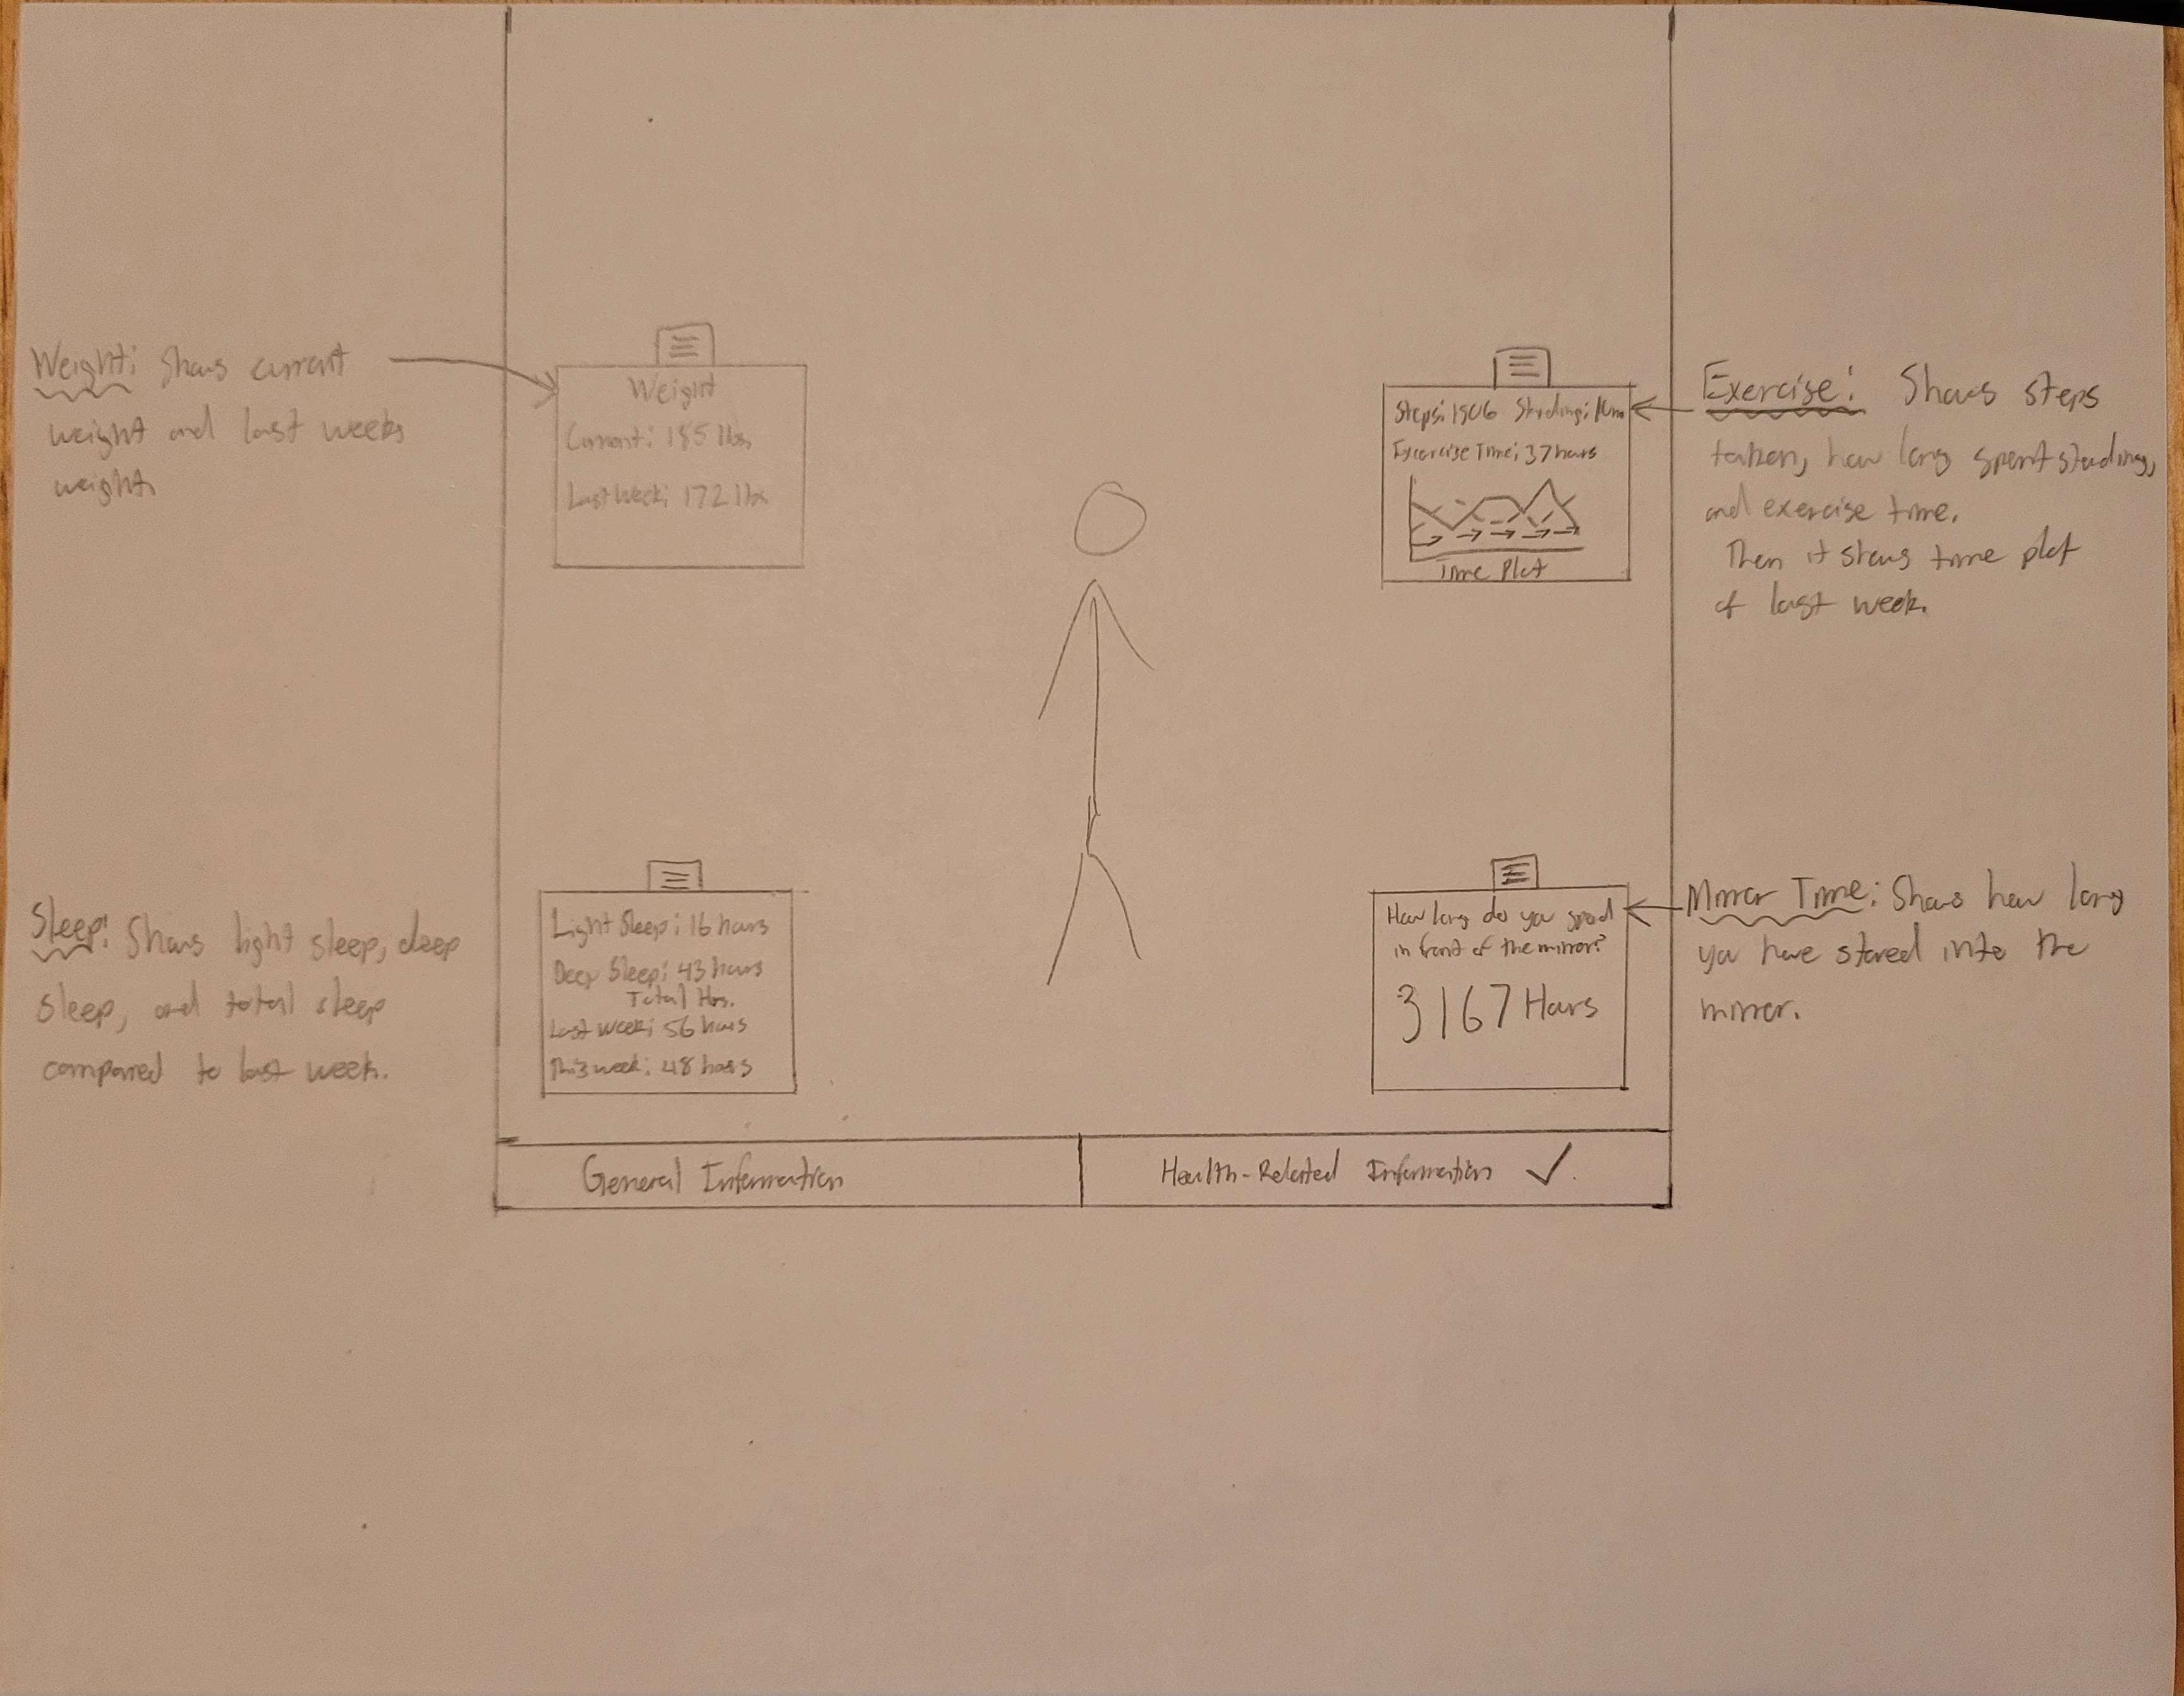 Weight: Shows current
weight and last weeks
weight.
Weight
Current: 185 lbs
Last Week: 172 lbs
Steps: 1906 Standing:
Excercise Time: 37 hours
Time Plot
Exercise: Shows steps
taken, how long spent standing,
and exercise time.
Then it shows time plot
of last week.
Sleep: Shows light sleep, deep
sleep, and total sleep
compared to last week.
Light Sleep: 16 hours
Deep Sleep: 43 hours
Total Hrs.
Last Week: 56 hours
This week: 48 hours
How long do you spend
in front of the mirror?
3167 Hours
Mirror Time: Shows how long
you have stared into the
mirror.
General Information
Health-Related Information ✓